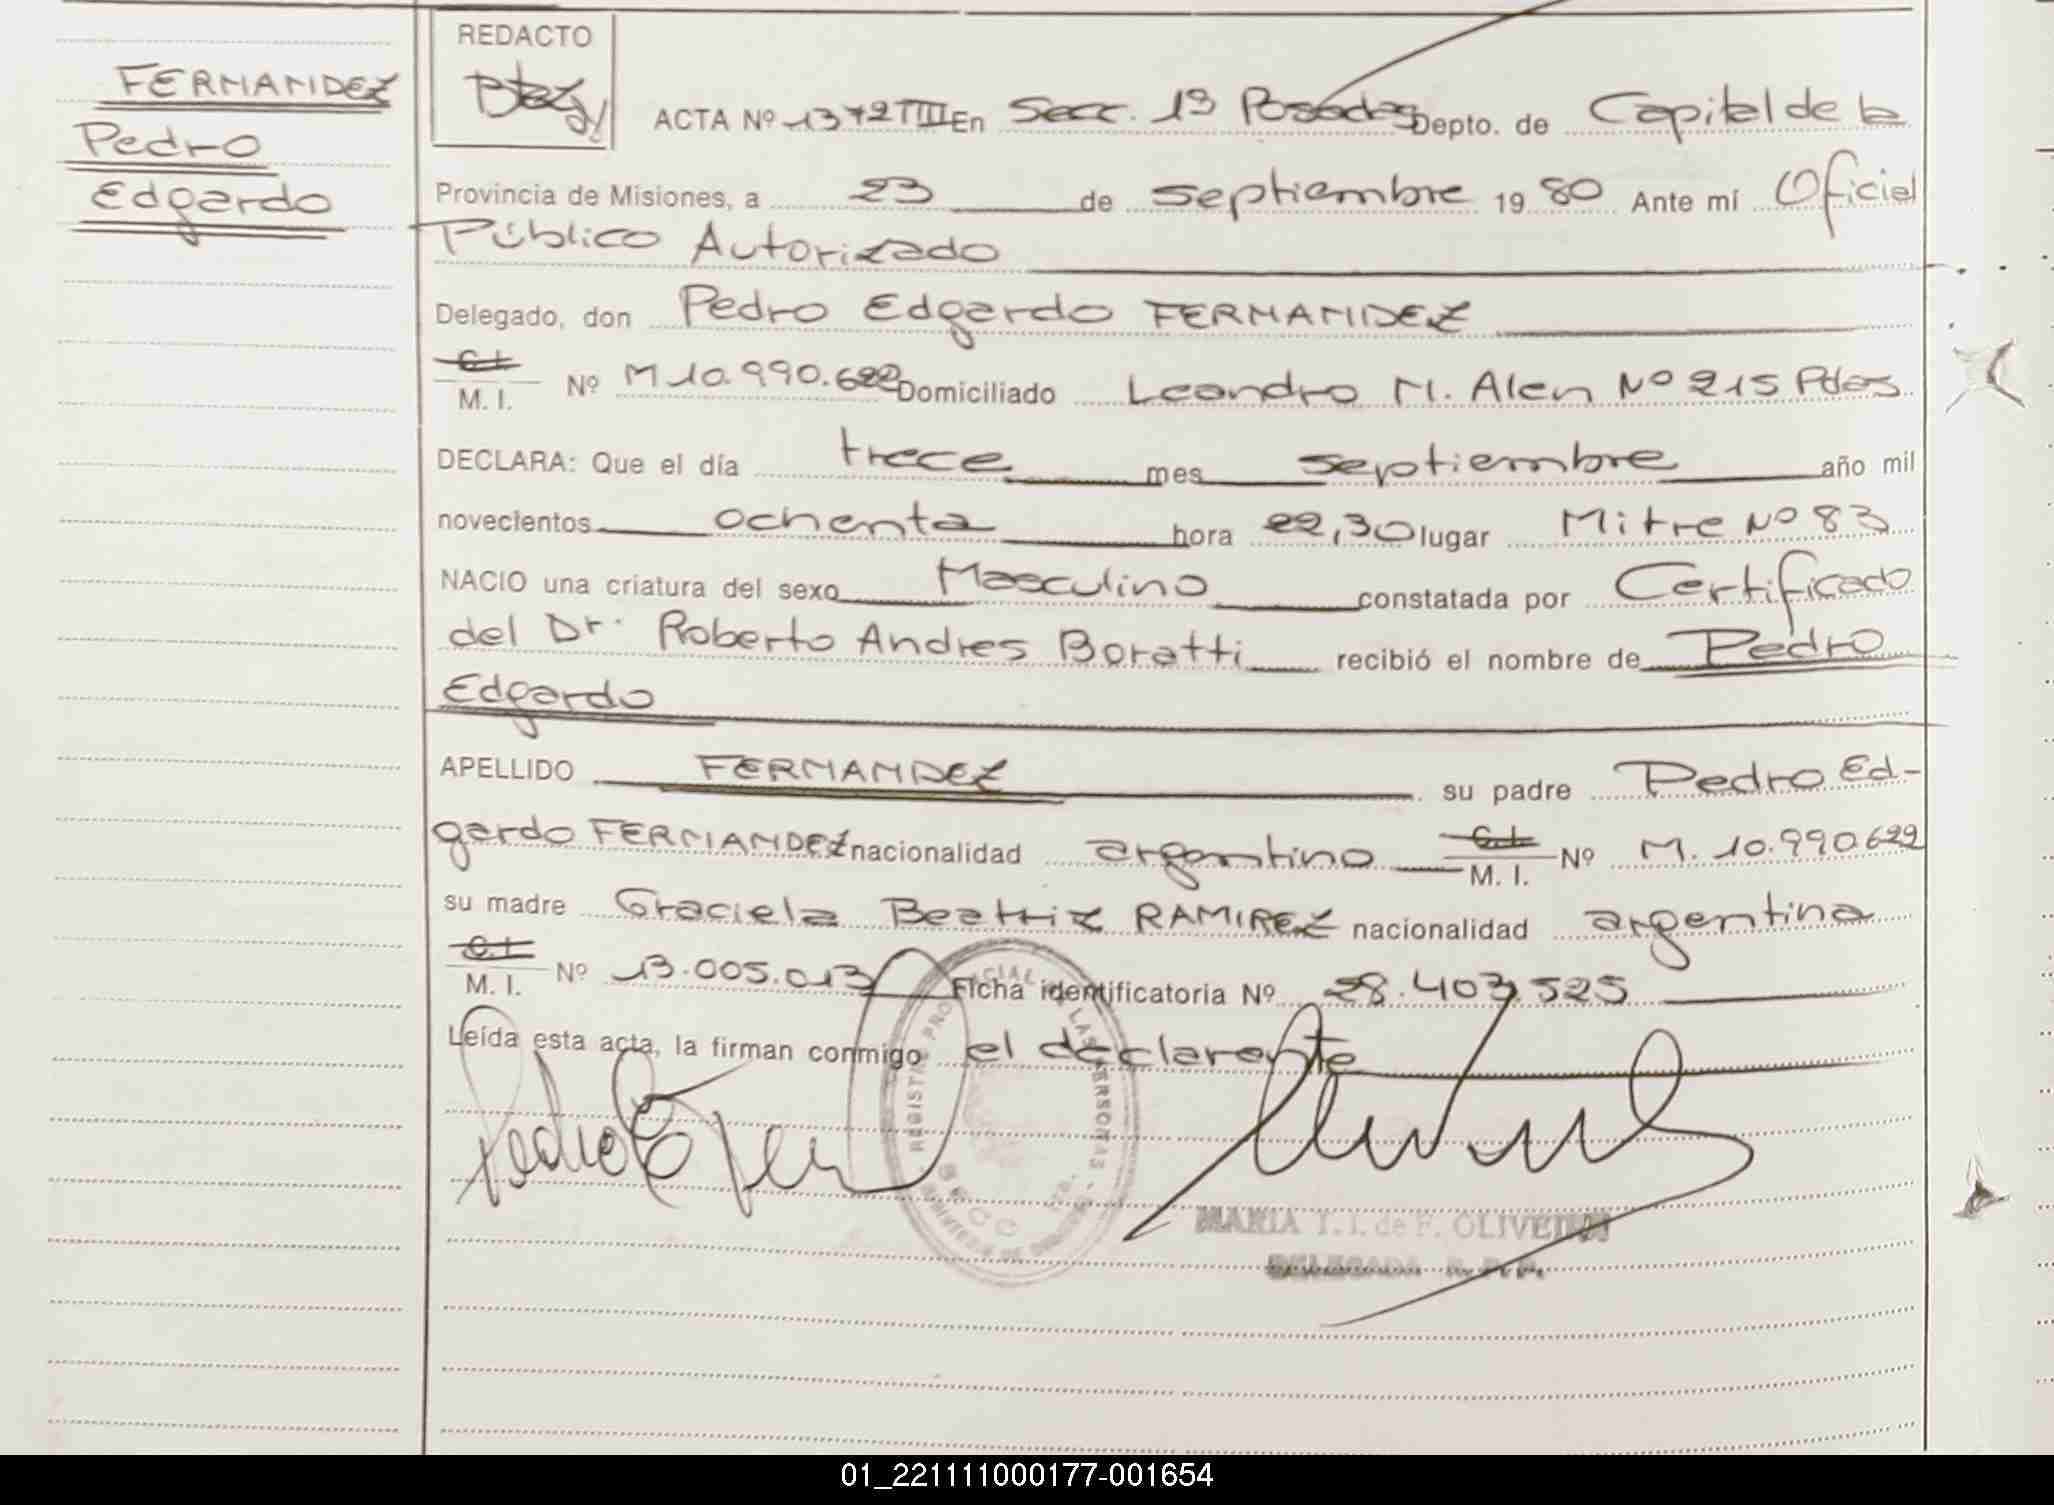 FERNANDEZ
Pedro
Edgardo
REDACTO
ACTA Nº 1372 TIII En Secc. 1ª Posadas Depto. de Capital de la
Provincia de Misiones, a 23 de septiembre 19 80 Ante mí Oficial
Público Autorizado
Delegado, don Pedro Edgardo FERNANDEZ
C.I.
M. I. Nº M 10.990.622 Domiciliado Leandro M. Alen Nº 215 Pdas
DECLARA: Que el día trece mes septiembre año mil
novecientos ochenta hora 22,30 lugar Mitre Nº 83
NACIO una criatura del sexo Masculino constatada por Certificado
del Dr. Roberto Andres Boratti recibió el nombre de Pedro
Edgardo
APELLIDO FERNANDEZ su padre Pedro Ed-
gardo FERNANDEZ nacionalidad argentino C.I. M. I. Nº M. 10.990.622
su madre Graciela Beatriz RAMIREZ nacionalidad argentina
C.I.
M. I. Nº 13.005.013 Ficha identificatoria Nº 28.403.525
Leída esta acta, la firman conmigo el declarante
REGISTRO PROVINCIAL DE LAS PERSONAS
SECC
MARIA I. I. de F. OLIVEIRA
DELEGADA R.P.P.
01_221111000177-001654